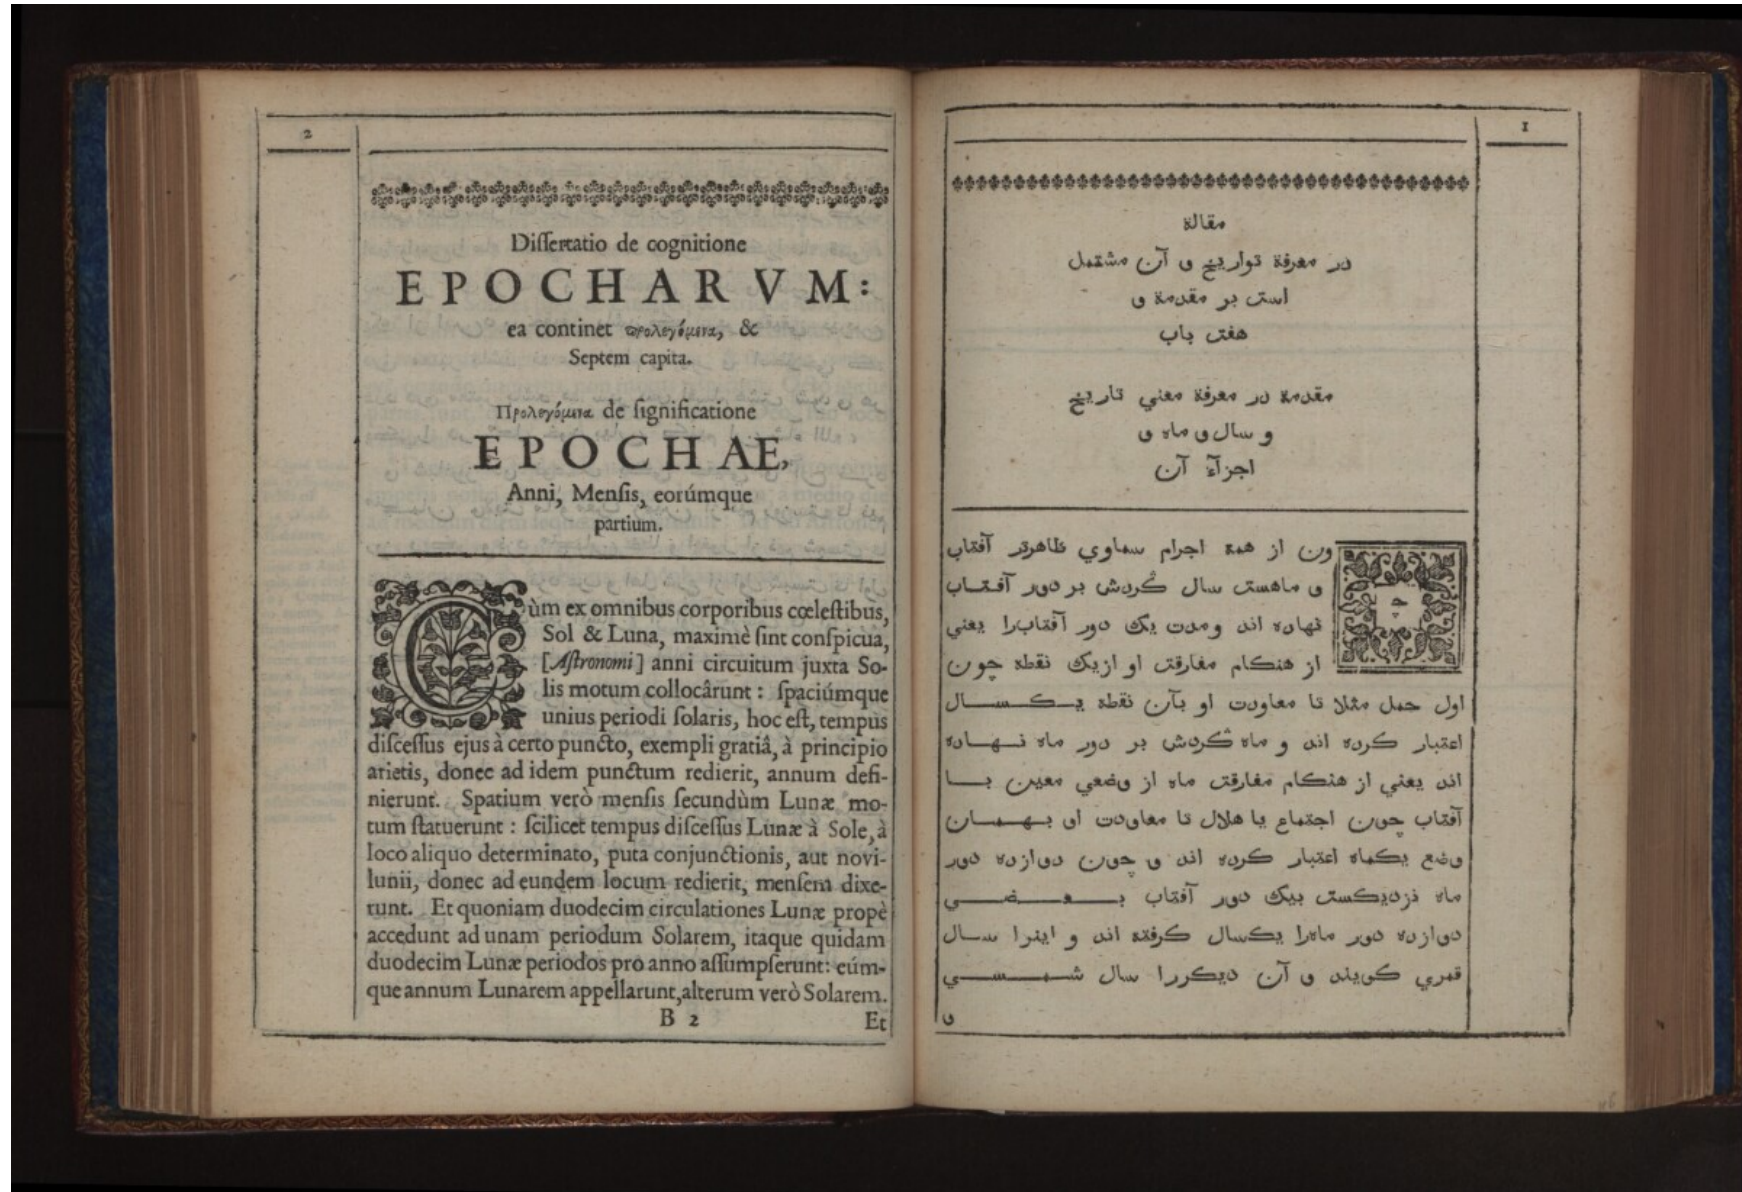 2
Dissertatio de cognitione
EPOCHARVM:
ea continet προλεγόμενα, &
Septem capita.
Προλεγόμενα de significatione
EPOCHAE,
Anni, Mensis, eorúmque
partium.
Cùm ex omnibus corporibus cœlestibus,
Sol & Luna, maximè sint conspicua,
[Astronomi] anni circuitum juxta So-
lis motum collocârunt: spaciúmque
unius periodi solaris, hoc est, tempus
discessus ejus à certo puncto, exempli gratiâ, à principio
arietis, donec ad idem punctum redierit, annum defi-
nierunt. Spatium verò mensis secundùm Lunæ mo-
tum statuerunt: scilicet tempus discessus Lunæ à Sole, à
loco aliquo determinato, puta conjunctionis, aut novi-
lunii, donec ad eundem locum redierit, mensem dixe-
runt. Et quoniam duodecim circulationes Lunæ propè
accedunt ad unam periodum Solarem, itaque quidam
duodecim Lunæ periodos pro anno assumpserunt: eúm-
que annum Lunarem appellarunt, alterum verò Solarem.
B 2 Et
1
مقالة
در معرفة تواريخ و آن مشتمل
است بر مقدمة و
هفت باب
مقدمة در معرفة معني تاريخ
و سال و ماه و
اجزآء آن
چون از همه اجرام سماوي ظاهرتر آفتاب
و ماهست سال گردش بر دور آفتاب
نهاده اند ومدت يك دور آفتاب‌را يعني
از هنكام مفارقت او ازيك نقطه چون
اول حمل مثلا تا معاودت او بآن نقطه يكسال
اعتبار كرده اند و ماه گردش بر دور ماه نهاده
اند يعني از هنكام مفارقت ماه از وضعي معين با
آفتاب چون اجتماع يا هلال تا معاودت او بهمان
وضع يكماه اعتبار كرده اند و چون دوازده دور
ماه نزديكست بيك دور آفتاب بعضي
دوازده دور ماه‌را يكسال كرفته اند و اينرا سال
قمري كويند و آن ديكررا سال شمسي
و